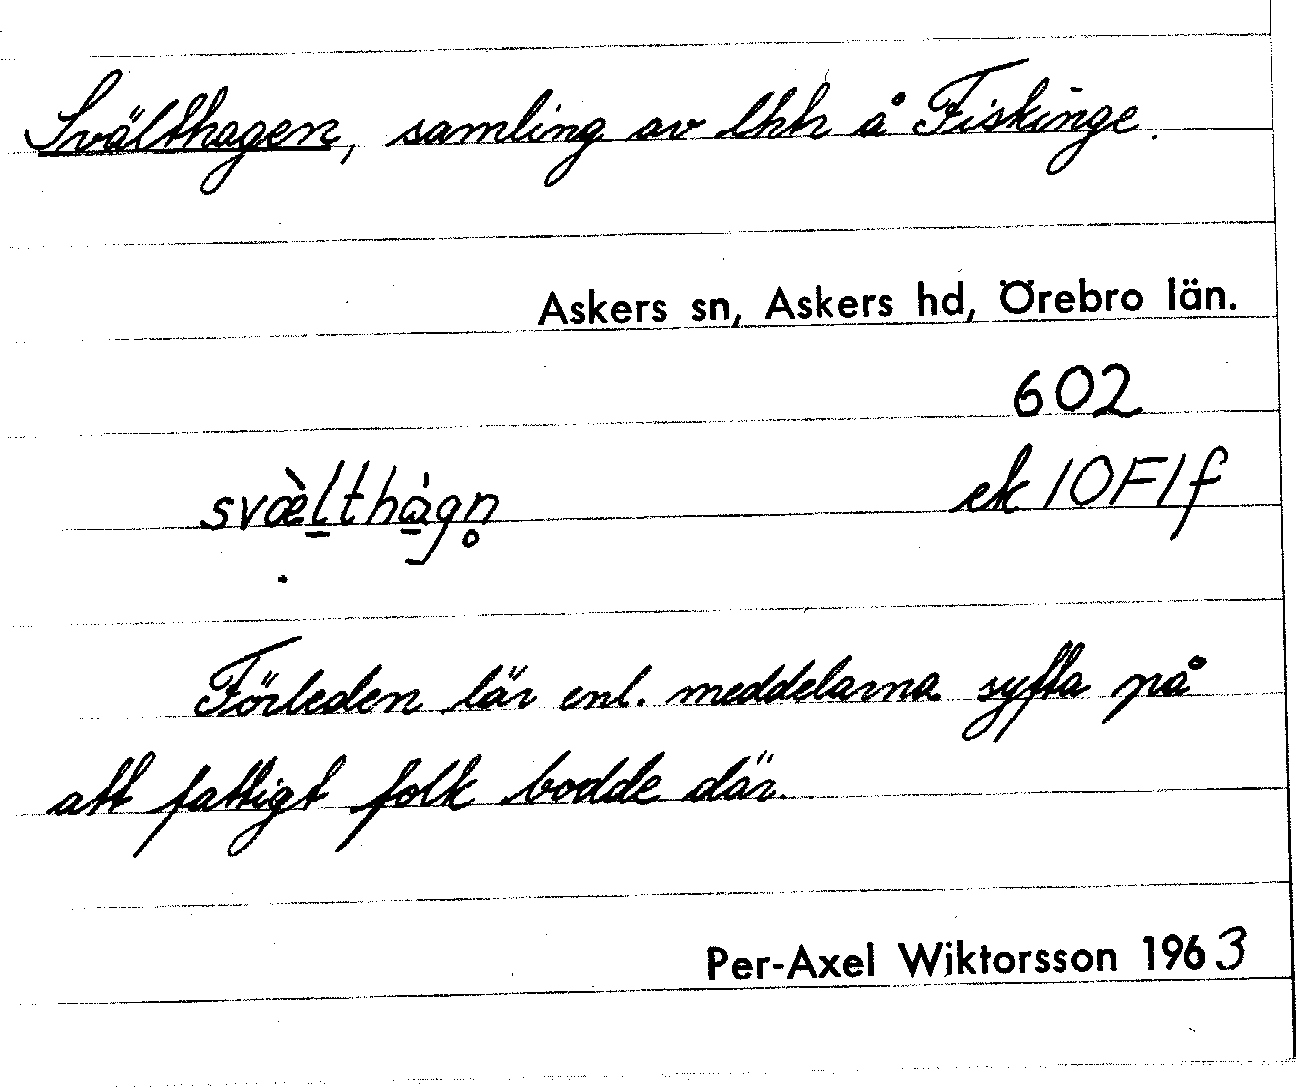 Svälthagen, samling av lhh å Fiskinge.
Askers sn, Askers hd, Örebro län.
602
svæ̀lthàgn̥ ek 10F1f
Förleden lär enl. meddelarna syfta på
att fattigt folk bodde där.
Per-Axel Wiktorsson 1963